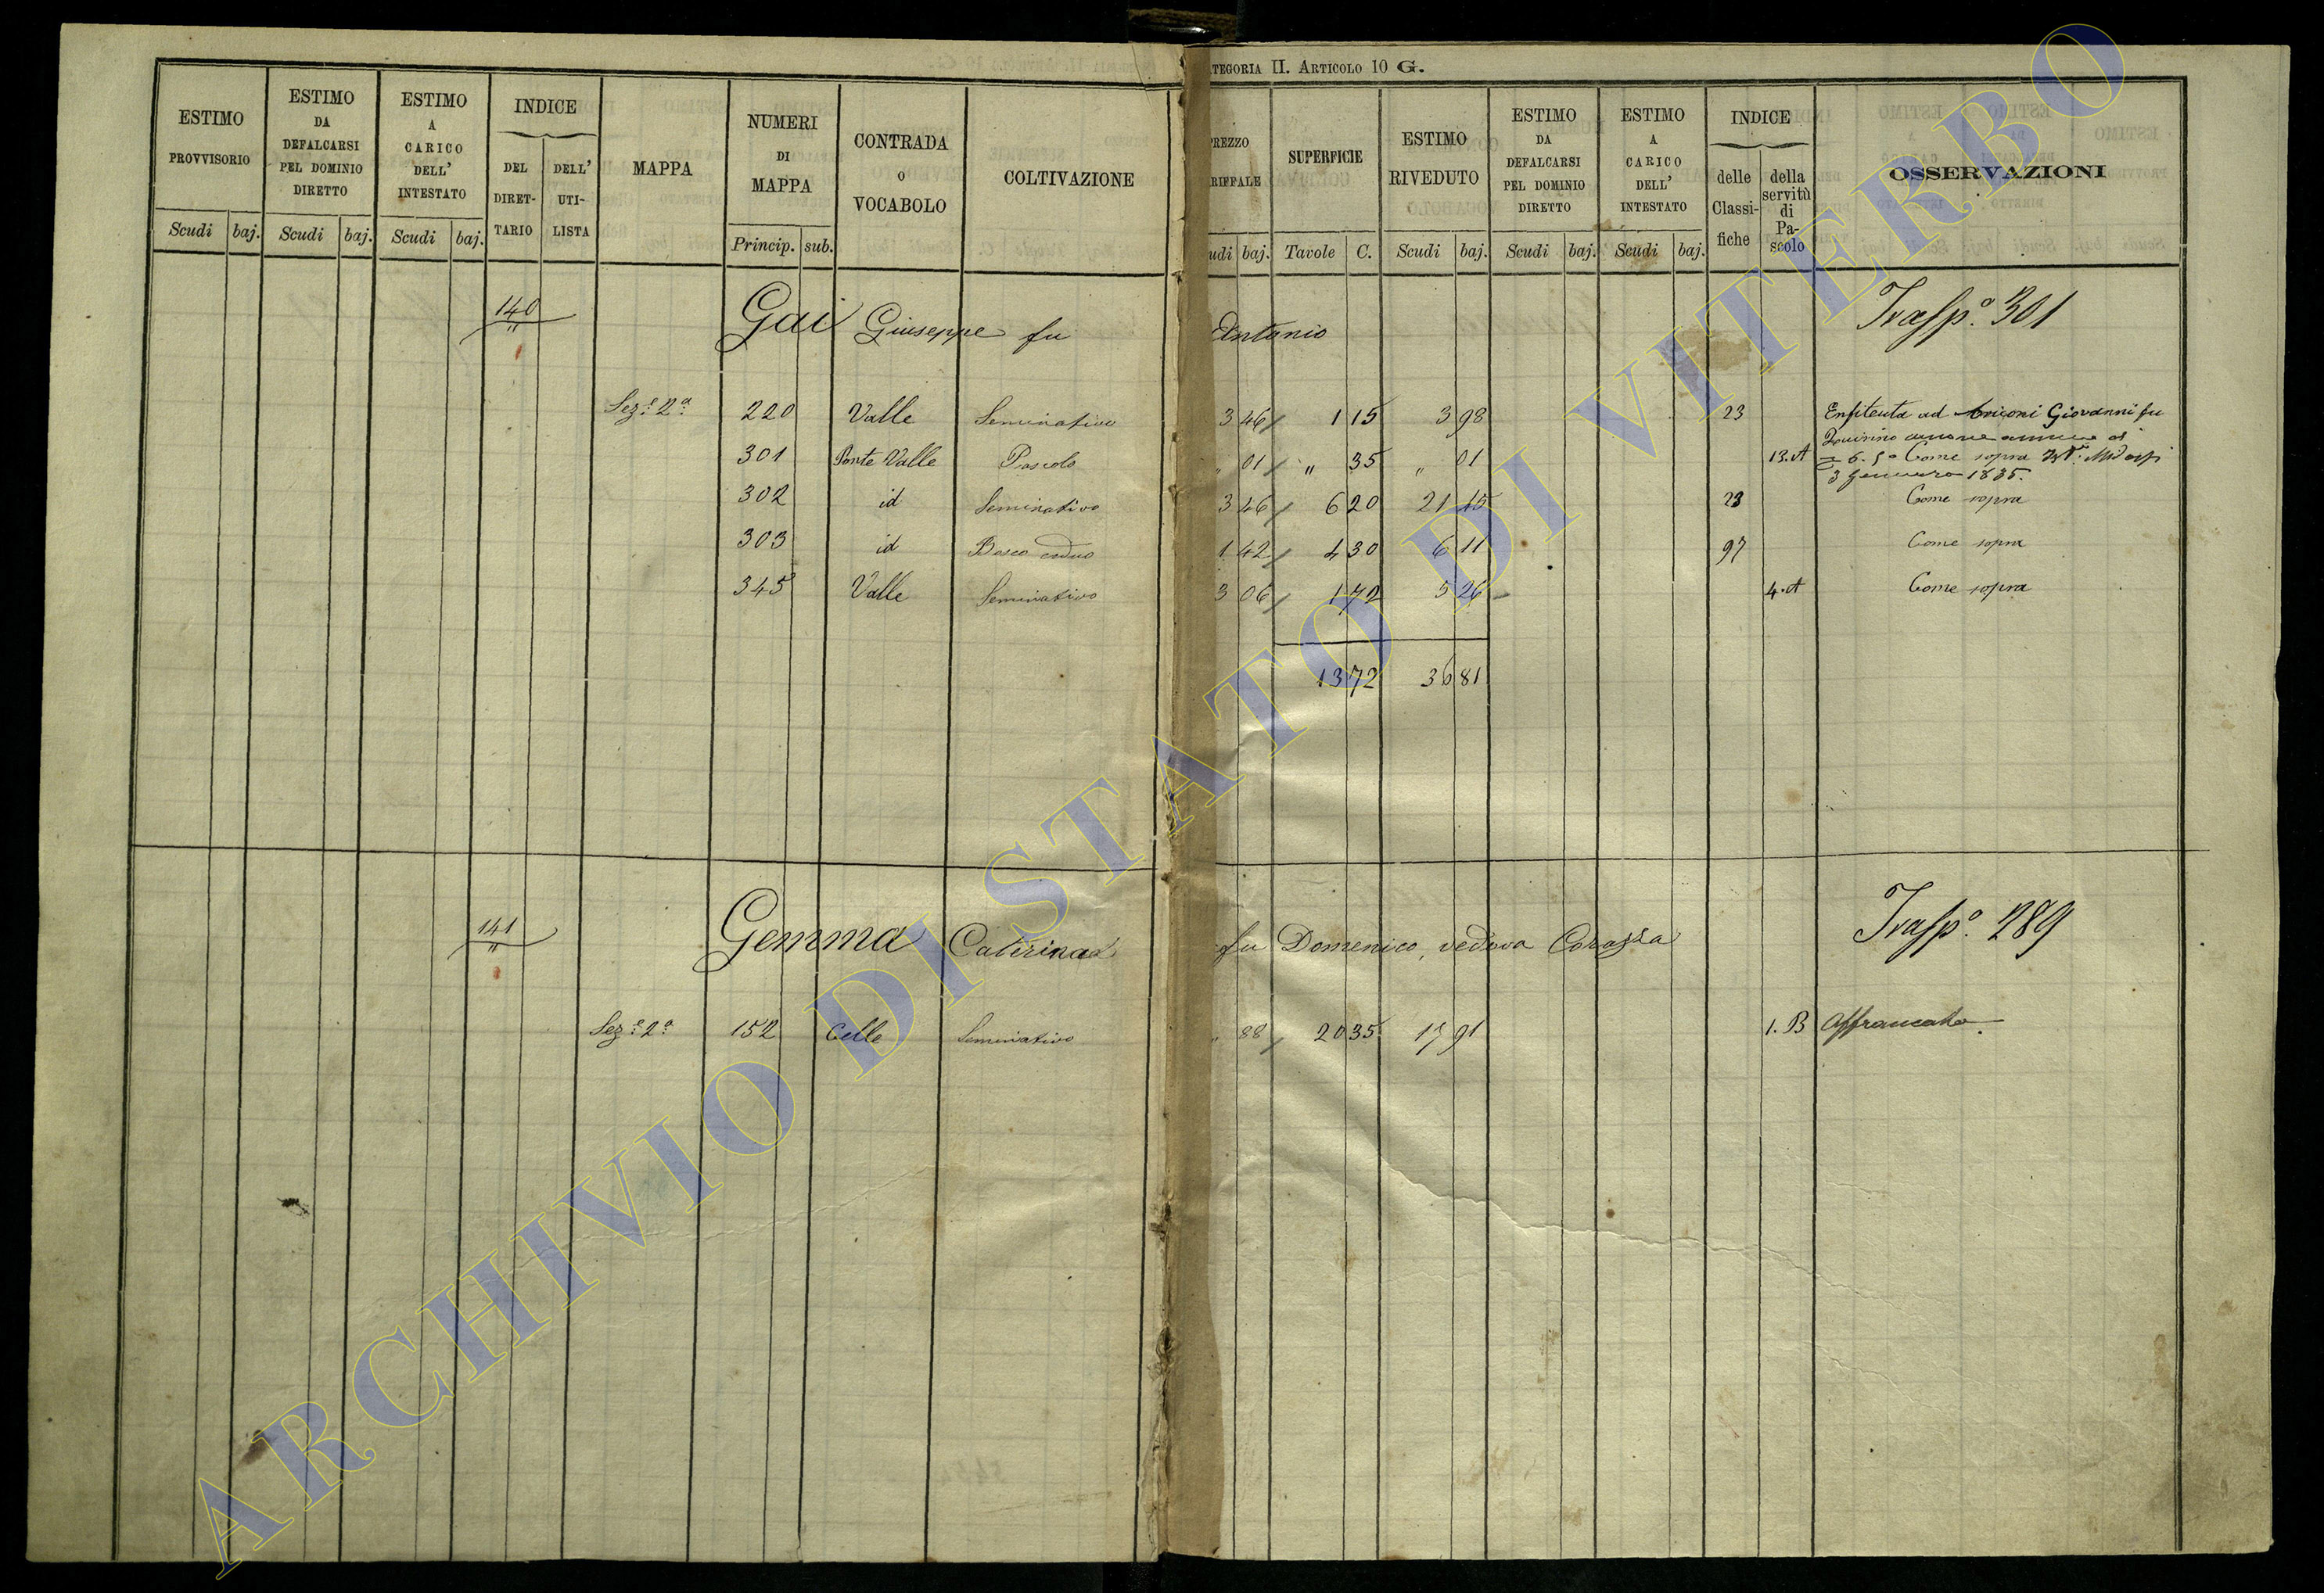 ATEGORIA II. ARTICOLO 10 G.
ESTIMO PROVVISORIO Scudi baj.
ESTIMO DA DEFALCARSI PEL DOMINIO DIRETTO Scudi baj.
ESTIMO A CARICO DELL' INTESTATO Scudi baj.
INDICE DEL DIRET-TARIO DELL' UTI-LISTA
MAPPA
NUMERI DI MAPPA Princip. sub.
CONTRADA O VOCABOLO
COLTIVAZIONE
PREZZO RIFFALE udi baj.
SUPERFICIE Tavole C.
ESTIMO RIVEDUTO Scudi baj.
ESTIMO DA DEFALCARSI PEL DOMINIO DIRETTO Scudi baj.
ESTIMO A CARICO DELL' INTESTATO Scudi baj.
INDICE delle Classi-fiche della servitù di Pa-scolo
OSSERVAZIONI
140 Gai Giuseppe fu Antonio Trasp.º 301
Sez.e 2a 220 Valle Seminativo 3 46 1 15 3 98 23 Enfiteuta ad Giovanni fu
Quirino
301 Ponte Valle Pascolo " 01 " 35 " 01 13.A Come sopra
3 Gennaro 1835.
302 id Seminativo 3 46 6 20 21 45 23 Come sopra
303 id Bosco ceduo 1 42 4 30 6 11 97 Come sopra
345 Valle Seminativo 3 06 1 72 5 26 4.A Come sopra
13 72 36 81
141 Gemma Caterina fu Domenico, vedova Corazza Trasp.º 289
Sez.e 2a 152 Celle Seminativo " 88 20 35 17 91 1.B Affrancato
ARCHIVIO DI STATO DI VITERBO